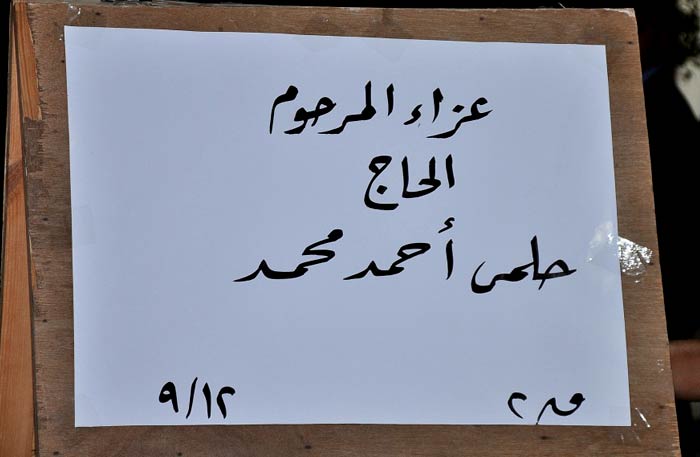 عزاء المرحوم
الحاج
حلمى أحمد محمد
ق ٢ ٩/١٢